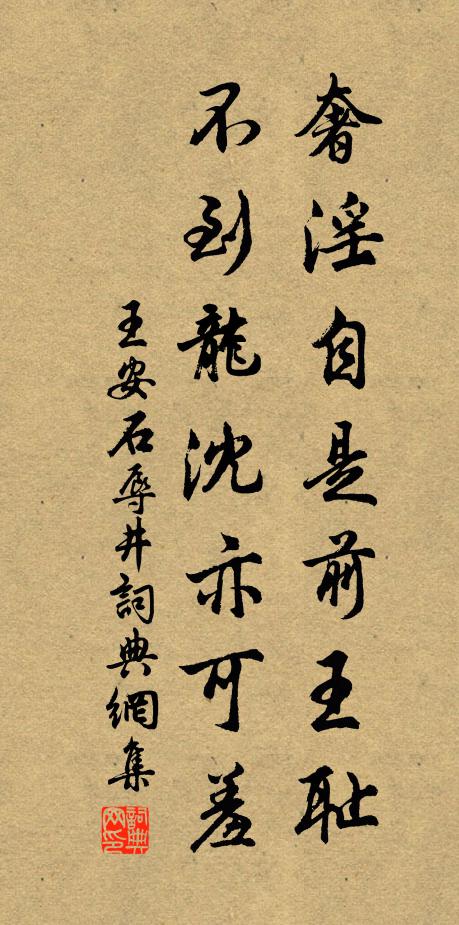 奢淫自是前王耻
不到龍沈亦可羞
王安石辱井詞典網集
詞典网印